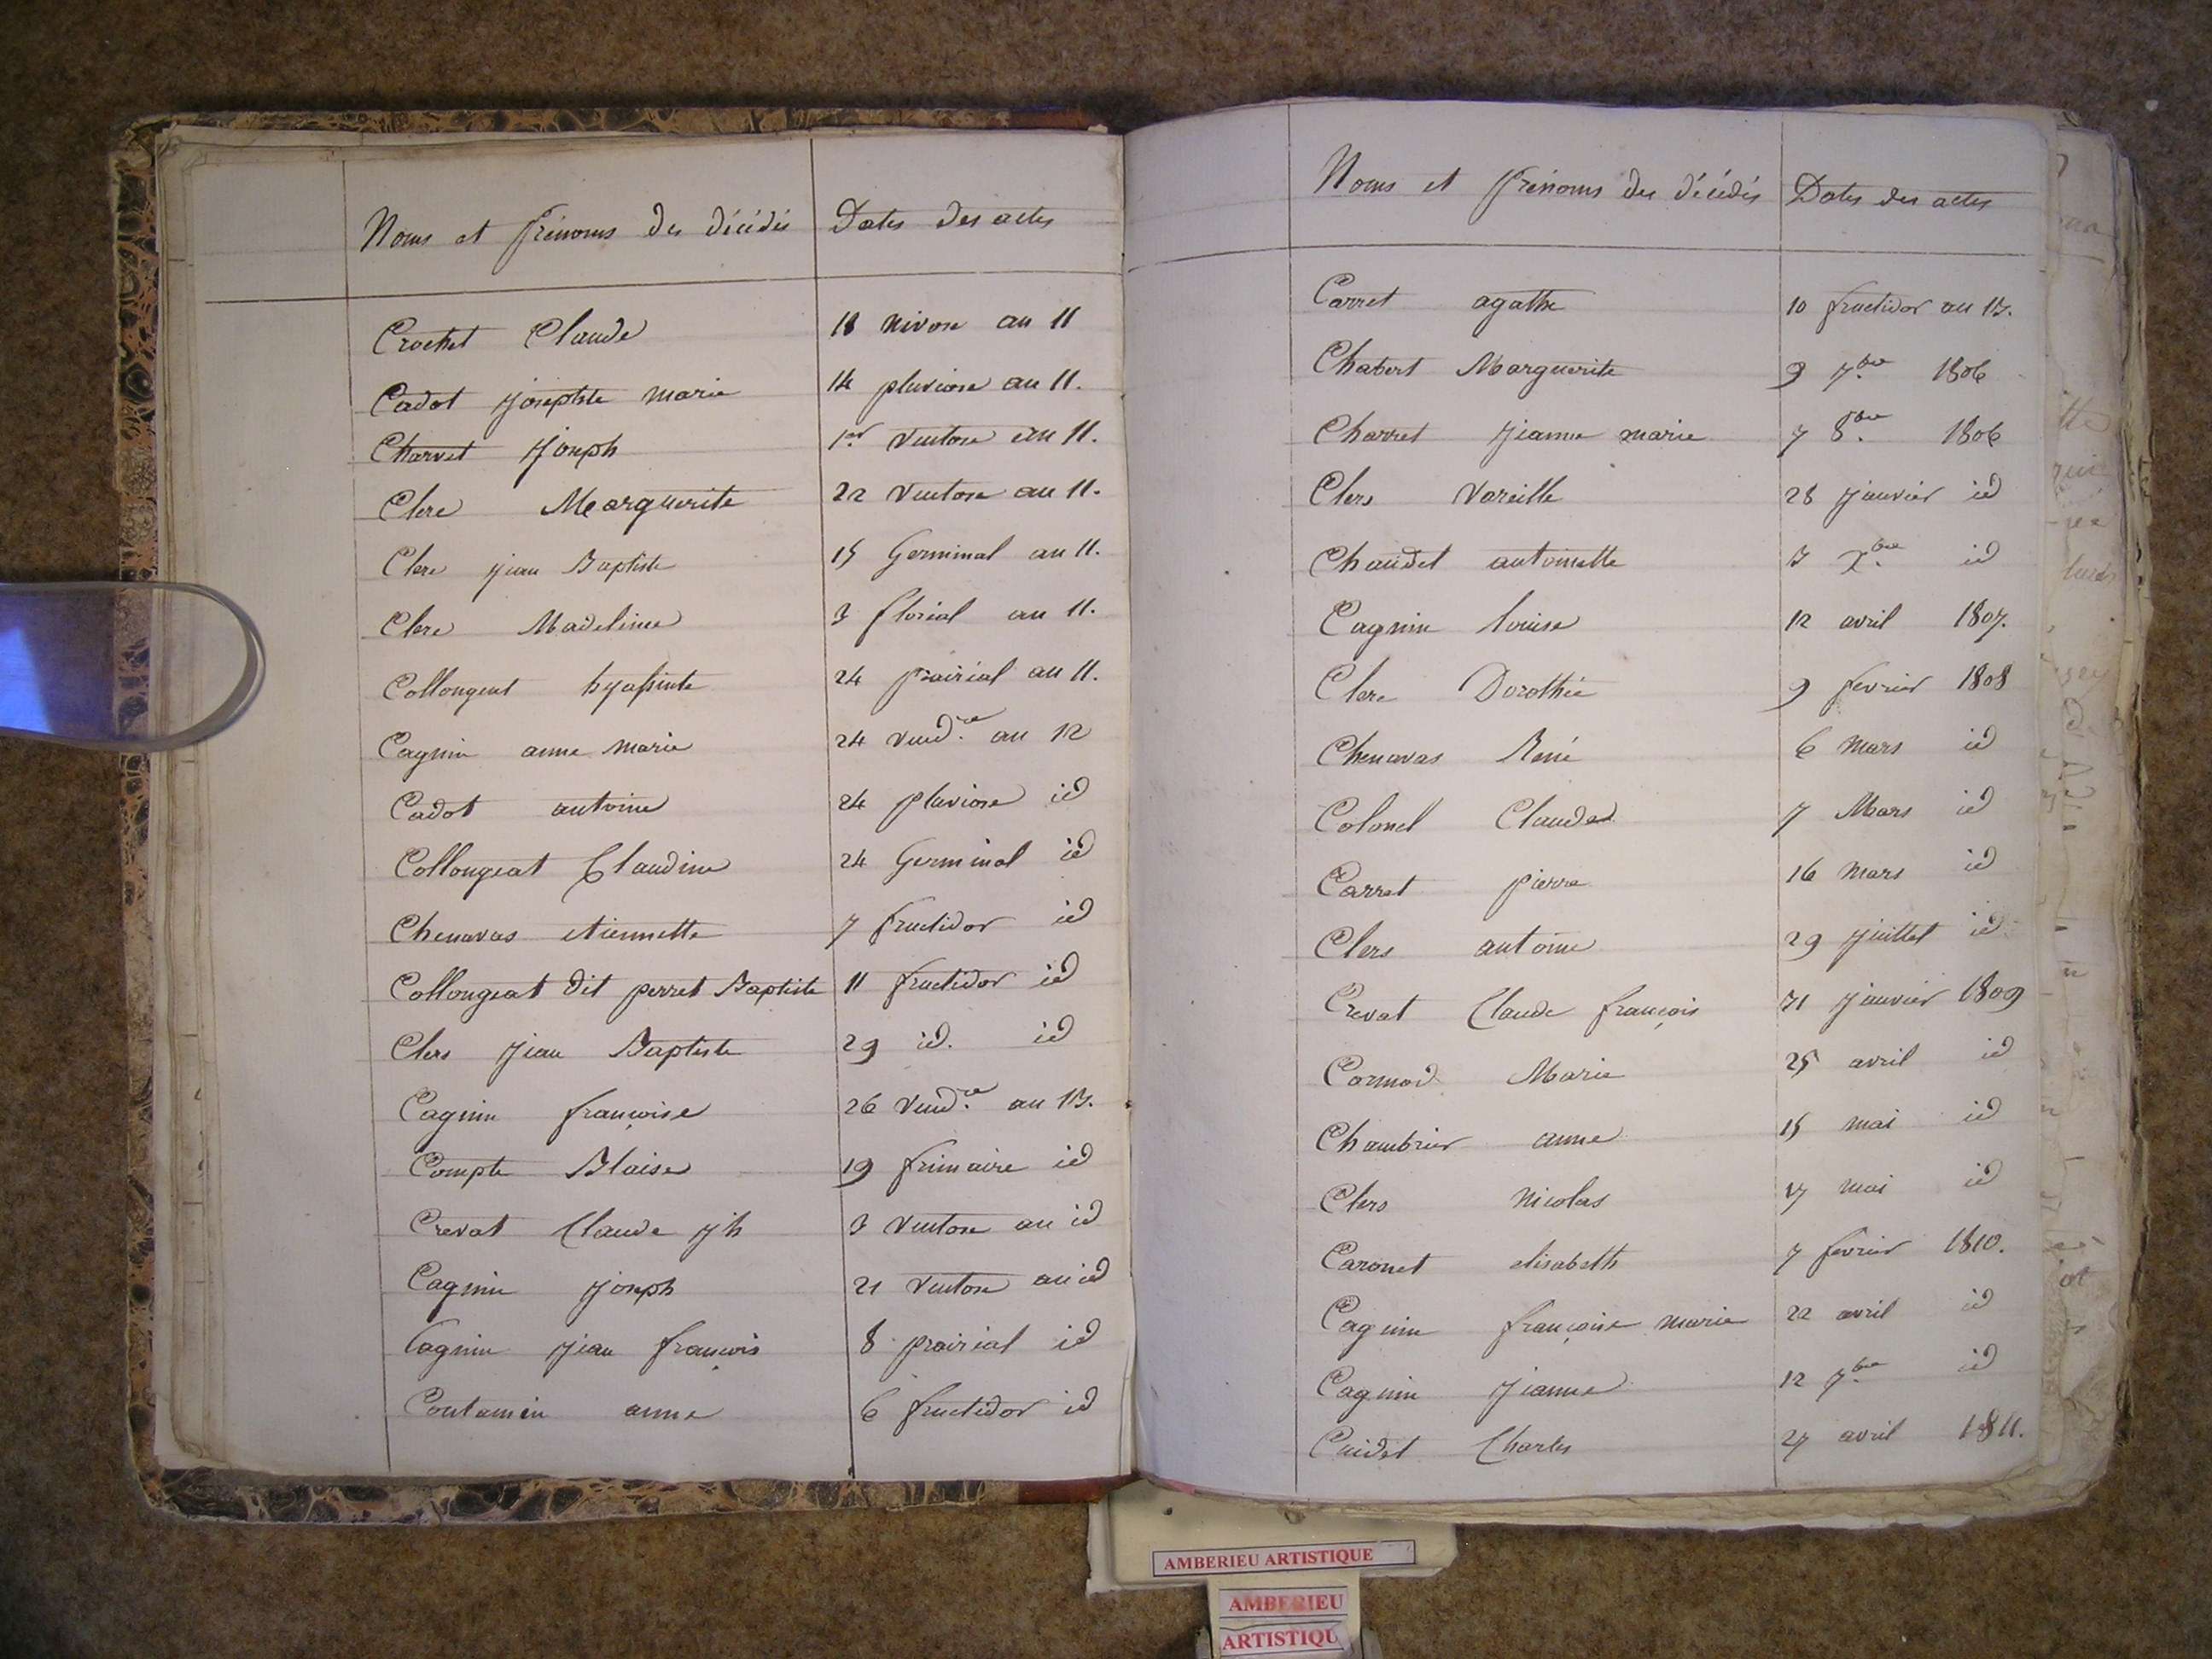 Noms et prénoms des décédés Dates des actes
Crochet Claude 18 nivose an 11
Cadot josephte marie 14 pluviose an 11.
Charvet joseph 1er ventose an 11.
Clere Marguerite 22 ventose an 11.
Clere jean Baptiste 15 Germinal an 11.
Clere Madelinne 3 floréal an 11.
Collongeat hyassinte 24 prairial an 11.
Cagnin anne marie 24 vend.re an 12
Cadot antoine 24 pluviose id
Collongeat Claudine 24 Germinal id
Chenavas etiennette 7 fructidor id
Collongeat dit perret Baptiste 11 fructidor id
Clers jean Baptiste 29 id. id
Cagnin françoise 26 vend.re an 13.
Compte Blaise 19 frimaire id
Crevat Claude jh 3 ventose an id
Cagnin joseph 21 ventose an id
Cagnin jean françois 8 prairial id
Contamin anne 6 fructidor id
Noms et prénoms des décédés Dates des actes
Carret agathe 10 fructidor an 13.
Chabert Marguerite 9 7.bre 1806
Charret jeanne marie 7 8.bre 1806
Clers 28 janvier id
Chaudet antoinette 3 X.bre id
Cagnin louise 12 avril 1807.
Clere Dorothée 9 fevrier 1808
Chenavas René 6 mars id
Colonel Claude 7 Mars id
Carret pierre 16 mars id
Clers antoine 29 juillet id
Crevat Claude françois 31 janvier 1809
Cormod Marie 25 avril id
Chambrier anne 15 mai id
Clers nicolas 17 mai id
Caronet elisabeth 7 fevrier 1810.
Cagnin françoise marie 22 avril id
Cagnin jeanne 12 7.bre id
Cuidet Charles 27 avril 1811.
AMBERIEU ARTISTIQUE
AMBERIEU
ARTISTIQU